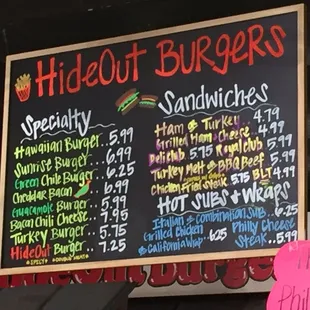 HideOut Burgers
Specialty
Hawaiian Burger.. 5.99
Sunrise Burger.. 6.99
Green Chile Burger.. 6.25
Cheddar Bacon.. 6.99
Guacamole Burger.. 5.99
Bacon Chili Cheese.. 7.95
Turkey Burger.. 5.75
HideOut Burger.. 7.25
*SPICY* *DOUBLE MEAT*
Sandwiches
Ham & Turkey.. 4.79
Grilled Ham & Cheese.. 4.99
Deli club.. 5.75 Royal club.. 5.99
Turkey Melt & BBQ Beef 5.99
Chicken Fried Steak 5.75 BLT 4.99
Hot Subs & Wraps
Italian & Combination Sub.. 6.25
Grilled Chicken 6.25 Philly Cheese
California Wrap Steak.. 5.99
HideOut Burgers
Phil